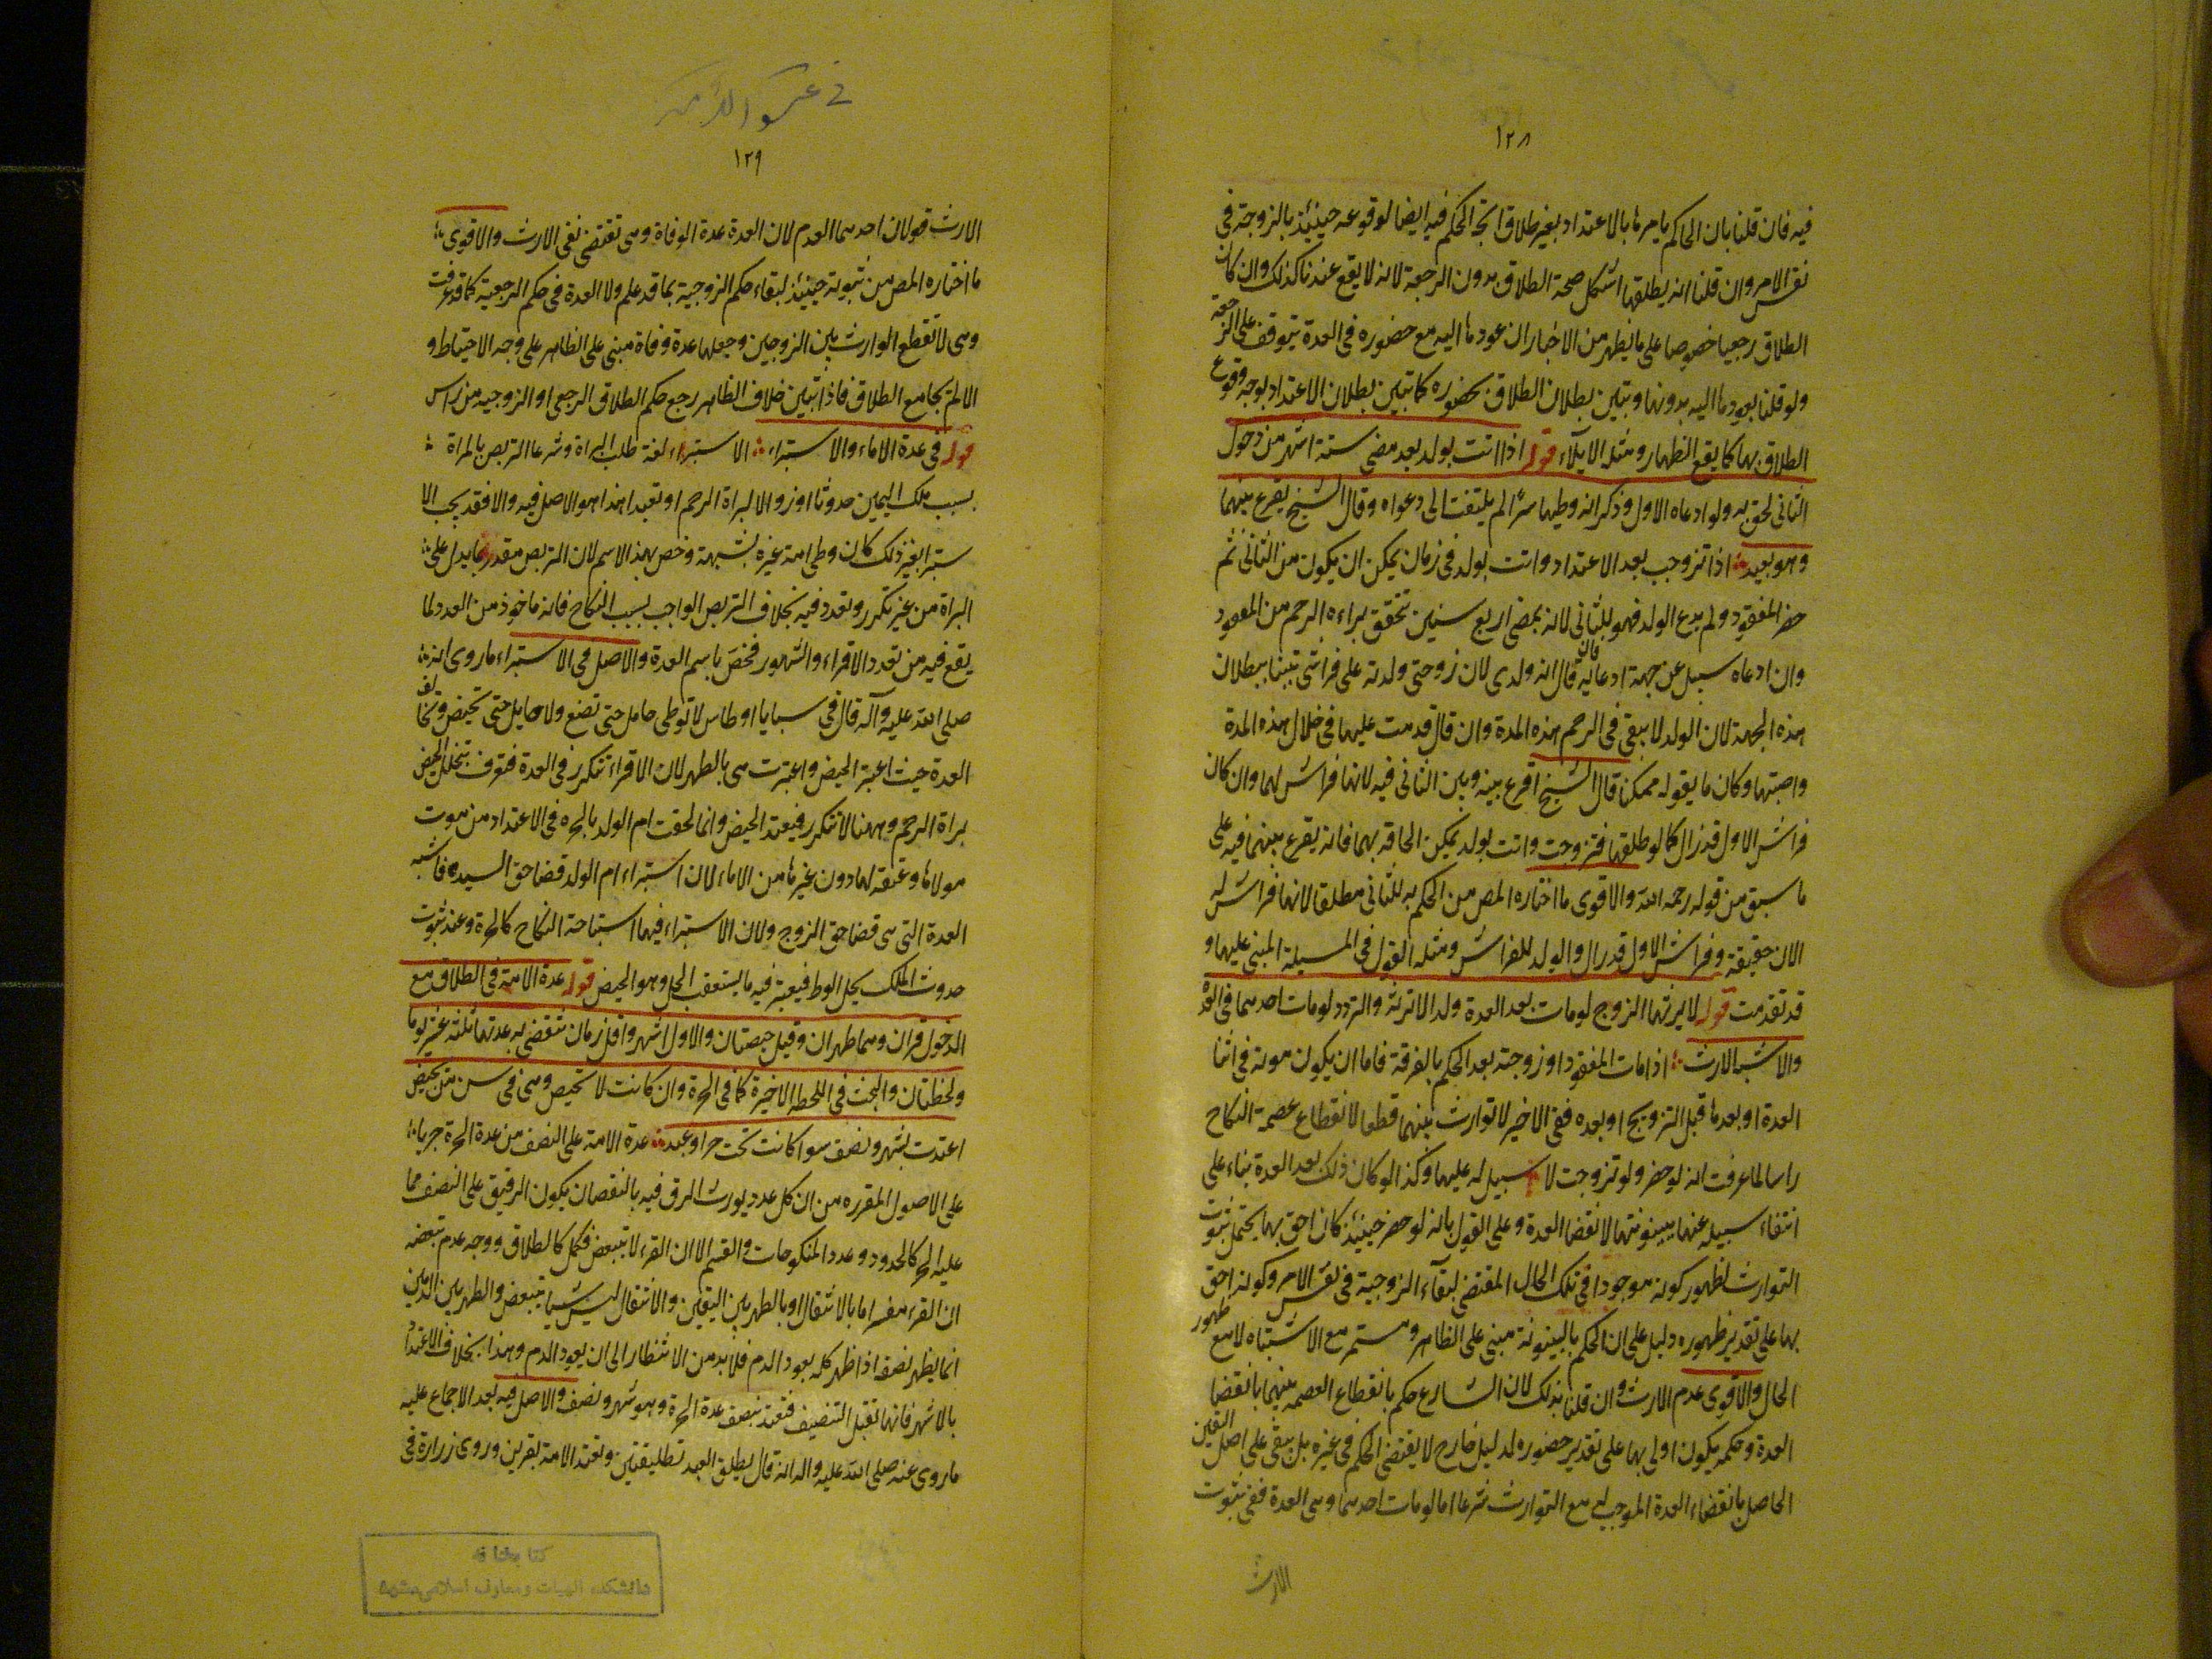 ١٢٨
فيه فان قلنا بان الحاكم يامرها بالاعتداد بغير طلاق اتجه الحكم فيه ايضا لوقوعه حينئذ بالزوجة في
نفس الامر وان قلنا انه يطلقها اشكل صحة الطلاق بدون الرجعة لانه لا يقع عندنا كذلك وان كان
الطلاق رجعيا خصوصا على ما يظهر من الاخبار ان عودها اليه مع حضوره في العدة يتوقف على الرجعة
ولو قلنا بعودها اليه بدونها وتبين بطلان الطلاق بحضوره كما تبين بطلان الاعتداد بوجه وقوع
الطلاق بها كما يقع الظهار ومثله الايلاء قوله اذا اتت بولد بعد مضي ستة اشهر من دخول
الثاني لحق به ولو ادعاه الاول وذكر انه وطيها سرا لم يلتفت الى دعواه وقال الشيخ يقرع بينهما
وهو بعيد اذا تزوجت بعد الاعتداد واتت بولد في زمان يمكن ان يكون من الثاني ثم
حضر المفقود ولم يدع الولد فهو للثاني لانه بمضي اربع سنين تتحقق براءه الرحم من المفقود
وان ادعاه سيل عن جهة ادعائه فان قال انه ولدي لان زوجتي ولدته على فراشي تبينا ببطلان
هذه الجهة لان الولد لا يبقى في الرحم هذه المدة وان قال قدمت عليها في خلال هذه المدة
واصبتها وكان ما يقوله ممكنا قال الشيخ اقرع بينه وبين الثاني فيه لانها فراش لهما وان كان
فراش الاول قد زال كما لو طلقها فتزوجت واتت بولد يمكن الحاقه بهما فانه يقرع بينهما فيه على
ما سبق من قوله رحمه الله والاقوى ما اختاره المص من الحكم به للثاني مطلقا لانها فراش له
الان حقيقة وفراش الاول قد زال والولد للفراش ومثله القول في المسيلة المبني عليها و
قد تقدمت قوله لا يرثها الزوج لو مات بعد العدة ولد الا ترثه والتردد لو مات احدهما في العدة
والاشبه الارث اذا مات المفقود او زوجته بعد الحكم بالفرقة فاما ان يكون موته في اثنا
العدة او بعدها قبل التزويج او بعده ففي الاخير لا توارث بينهما قطعا لانقطاع عصمة النكاح
راسا لما عرفت انه لو حضر ولو تزوجت لا سبيل له عليها وكذا لو كان ذلك بعد العدة بناء على
انتفاء سبيله عنها ببينونتها لانقضا العدة وعلى القول بانه لو حضر حينئذ كان احق بها يحتمل ثبوت
التوارث لظهور كونه موجودا في تلك الحال المقتضي لبقاء الزوجية في نفس الامر وكونه احق
بها على تقدير ظهوره دليل على ان الحكم بالبينونة مبني على الظاهر ومستمر مع الاشتباه لا مع ظهور
الحال والاقوى عدم الارث وان قلنا بذلك لان الشارع حكم بانقطاع العصمه بينهما بانقضا
العدة وحكمه بكونه اولى بها على تقدير حضوره لدليل خارج لا يقتضي الحكم في غيره بل يبقى على اصل اليقين
الحاصل بانقضاء العدة الموجب له مع التوارث شرعا اما لو مات احدهما وهي العدة ففي ثبوت
الارث
١٢٩
الارث قولان احدهما العدم لان العدة عدة الوفاة وهي تقتضي نفي الارث والاقوى
ما اختاره المص من ثبوته حينئذ لبقاء حكم الزوجية بما قد علم ولا العدة في حكم الرجعية كما قد عرفت
وهي لا تقطع الوارث بين الزوجين وجعلها عدة وفاة مبني على الظاهر على وجه الاحتياط و
الا لم تجامع الطلاق فاذا تبين خلاف الظاهر رجع حكم الطلاق الرجعي او الزوجيه من راس
قوله في عدة الاماء والاستبراء الاستبراء لغة طلب البراة وشرعا التربص بالمراة
بسبب ملك اليمين حدوثا او زوالا لبراة الرحم او تعبدا هذا هو الاصل فيه والا فقد يجب الا
ستبرا بغير ذلك كان وطي امة غيره بشبهة وخص بهذا الاسم لان التربص مقدر بما يدل على
البراة من غير تكرر وتعدد فيه بخلاف التربص الواجب بسبب النكاح فانه ماخوذ من العدد لما
يقع فيه من تعدد الاقراء والشهور فخص باسم العدة والاصل في الاستبراء ما روى انه
صلى الله عليه وآله قال في سبايا اوطاس لا توطى حامل حتى تضع ولا حايل حتى تحيض وتخالف
العدة حيث اعتبر الحيض واعتبرت هي بالطهر لان الاقراء تتكرر في العدة فتعرف بتخلل الحيض
براة الرحم وههنا لا تتكرر فيعتبر الحيض وانما لحقت ام الولد بالحره في الاعتداد من موت
مولاها وعتقه لها دون غيرها من الاماء لان استبراء ام الولد قضا حق السيده فاشبه
العدة التي هي قضا حق الزوج ولان الاستبراء فيها استباحة النكاح كالحرة وعند ثبوت
حدوث الملك يحل الوطي فيعتبر فيه ما يستعقب الحل وهو الحيض قوله عدة الامة في الطلاق مع
الدخول قران وهما طهران وقيل حيضتان والاول اشهر واقل زمان تنقضي به عدتها ثلثه عشر يوما
ولحظتان والبحث في اللحظه الاخيرة كما في الحرة وان كانت لا تحيض وهي في سن من تحيض
اعتدت بشهر ونصف سوا كانت تحت حر او عبد عدة الامة على النصف من عدة الحرة جريا
على الاصول المقرره من ان كل عدد يورث الرق فيه بالنقصان يكون الرقيق على النصف مما
عليه الحر كالحدود وعدد المنكوحات والقسم الا ان القرء لا يتبعض فكمل كالطلاق ووجه عدم تبعضه
ان القرء مفسر اما بالانتقال او بالطهر بين اليقين والانتقال ليس شيا يتبعض والطهر بين الدمين
انما يظهر نصفه اذا ظهر كله بعود الدم فلا بد من الانتظار الى ان يعود الدم وهذا بخلاف الاعتداد
بالاشهر فانها تقبل التنصيف فتعتد بنصف عدة الحرة وهو شهر ونصف والاصل فيه بعد الاجماع عليه
ما روى عنه صلى الله عليه واله انه قال يطلق العبد تطليقتين وتعتد الامة بقرين وروى زرارة في
كتابخانه
دانشكده الهيات ومعارف اسلامي مشهد